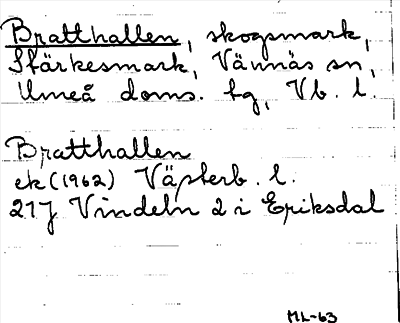 Bratthallen, skogsmark,
Stärkesmark, Vännäs sn,
Umeå doms. tg, Vb. l.
Bratthallen
ek (1962) Västerb. l.
21J Vindeln 2 i Eriksdal
ML-63